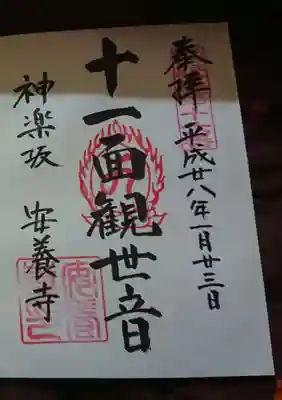 奉拝
平成廿八年一月廿三日
十一面観世音
神楽坂 安養寺